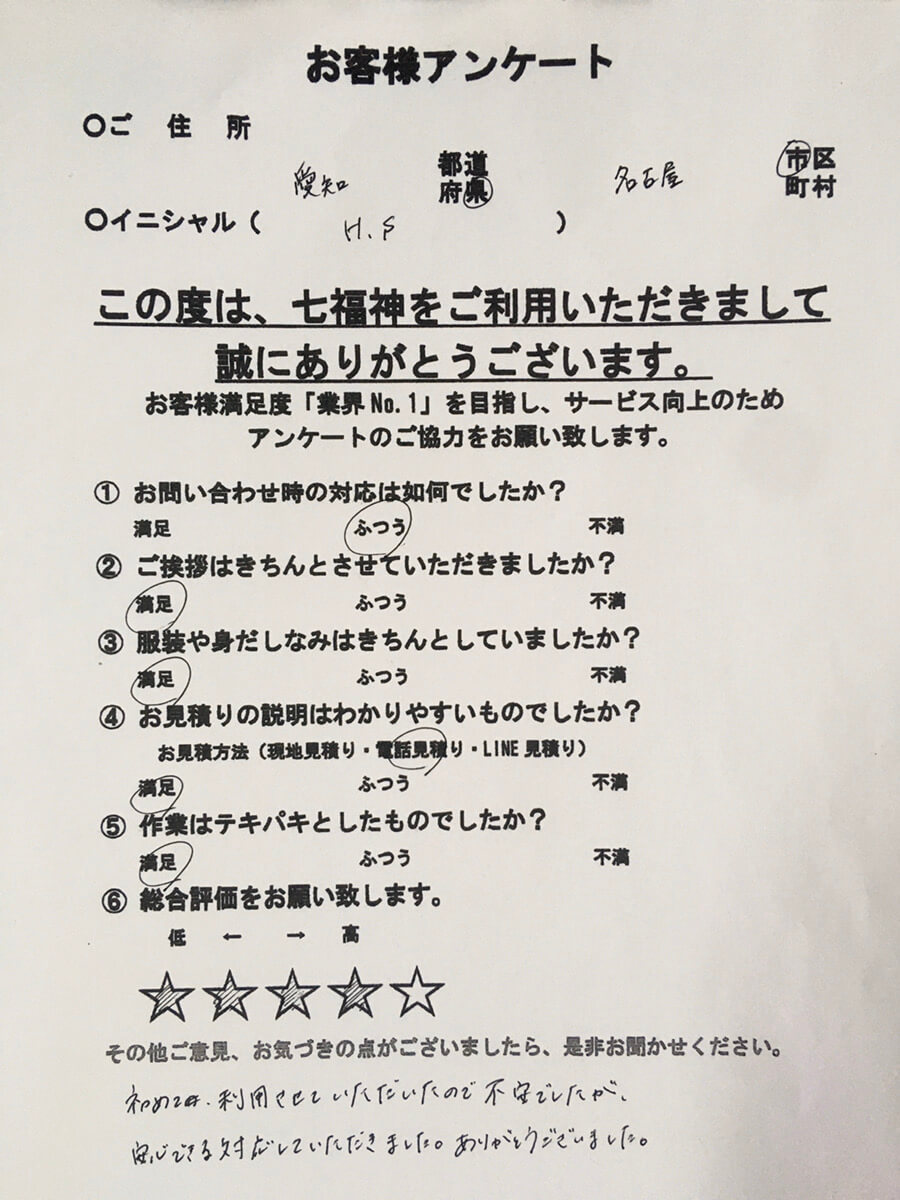 お客様アンケート
〇ご 住 所
愛知 都道府県 名古屋 市区町村
〇イニシャル( H.S )
この度は、七福神をご利用いただきまして
誠にありがとうございます。
お客様満足度「業界No.1」を目指し、サービス向上のため
アンケートのご協力をお願い致します。
① お問い合わせ時の対応は如何でしたか？
満足 ふつう 不満
② ご挨拶はきちんとさせていただきましたか？
満足 ふつう 不満
③ 服装や身だしなみはきちんとしていましたか？
満足 ふつう 不満
④ お見積りの説明はわかりやすいものでしたか？
お見積方法（現地見積り・電話見積り・LINE見積り）
満足 ふつう 不満
⑤ 作業はテキパキとしたものでしたか？
満足 ふつう 不満
⑥ 総合評価をお願い致します。
低 ← → 高
★★★★☆
その他ご意見、お気づきの点がございましたら、是非お聞かせください。
初めて、利用させていただいたので不安でしたが、
安心できる対応していただきました。ありがとうございました。